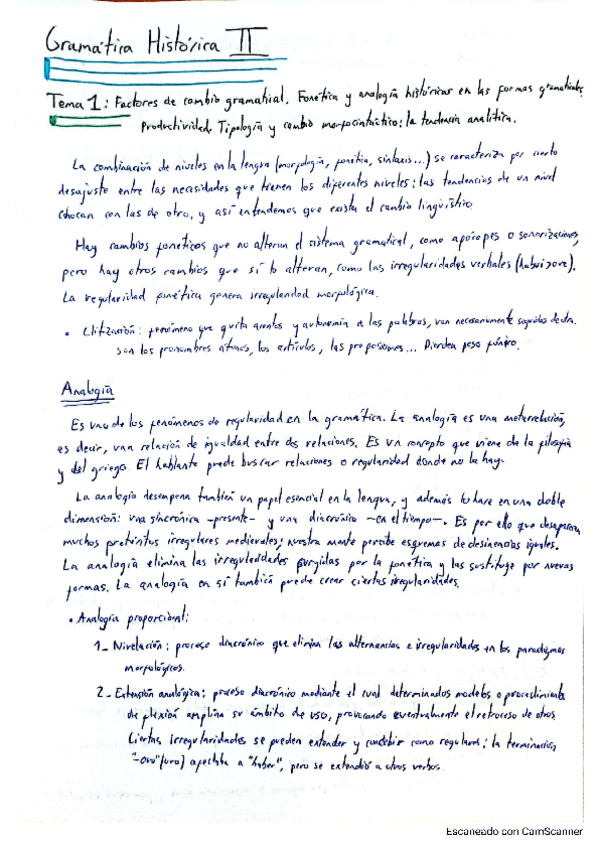 Gramática Histórica II
Tema 1: Factores de cambio gramatical. Fonética y analogía históricas en las formas gramaticales.
Productividad. Tipología y cambio morfosintáctico: la tendencia analítica.
La combinación de niveles en la lengua (morfología, fonética, sintaxis...) se caracteriza por cierto
desajuste entre las necesidades que tienen los diferentes niveles: las tendencias de un nivel
chocan con las de otro, y así entendemos que exista el cambio lingüístico
Hay cambios fonéticos que no alteran el sistema gramatical, como apócopes o sonorizaciones,
pero hay otros cambios que sí lo alteran, como las irregularidades verbales
La regularidad fonética genera irregularidad morfológica.
• Clitización: fenómeno que quita acentos y autonomía a las palabras, van necesariamente seguidas de otra.
Son los pronombres átonos, los artículos, las preposiciones... Pierden peso fónico.
Analogía
Es uno de los fenómenos de regularidad en la gramática. La analogía es una metarrelación,
es decir, una relación de igualdad entre dos relaciones. Es un concepto que viene de la filosofía
y del griego. El hablante puede buscar relaciones o regularidad donde no la hay.
La analogía desempeña también un papel esencial en la lengua, y además lo hace en una doble
dimensión: una sincrónica -presente- y una diacrónica -en el tiempo-. Es por ello que desaparecen
muchos pretéritos irregulares medievales; nuestra mente percibe esquemas de desinencias iguales.
La analogía elimina las irregularidades surgidas por la fonética y las sustituye por nuevas
formas. La analogía en sí también puede crear ciertas irregularidades.
• Analogía proporcional:
1- Nivelación: proceso diacrónico que elimina las alternancias e irregularidades en los paradigmas
morfológicos.
2- Extensión analógica: proceso diacrónico mediante el cual determinados modelos o procedimientos
de flexión amplían su ámbito de uso, provocando eventualmente el retroceso de otros.
Ciertas irregularidades se pueden extender y concebir como regulares: la terminación
"-ovo" (uvo) afectaba a "haber", pero se extendió a otros verbos.
Escaneado con CamScanner